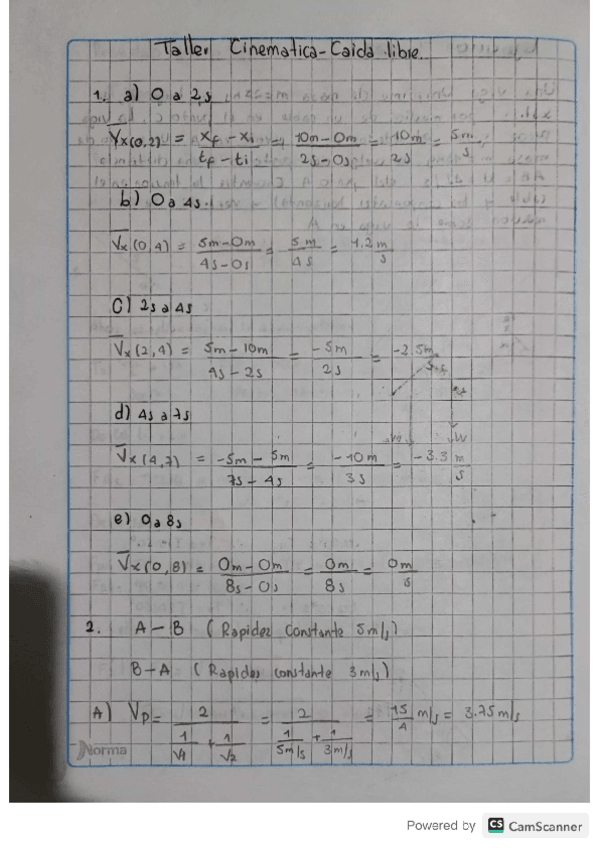 Taller Cinematica-Caida libre.
1. a) 0 a 2s
V̅x(0,2) = xf - xi / tf - ti = 10m - 0m / 2s - 0s = 10m / 2s = 5m / s
b) 0 a 4s.
V̅x(0,4) = 5m - 0m / 4s - 0s = 5m / 4s = 1.2 m / s
C) 2s a 4s
V̅x(2,4) = 5m - 10m / 4s - 2s = -5m / 2s = -2.5m
d) 4s a 7s
V̅x(4,7) = -5m - 5m / 7s - 4s = -10m / 3s = -3.3 m / s
e) 0a 8s
V̅x(0,8) = 0m - 0m / 8s - 0s = 0m / 8s = 0m / s
2. A - B ( Rapidez Constante 5m/s)
B - A ( Rapidez constante 3m/s)
A) Vp = 2 / 1/V1 + 1/V2 = 2 / 1/5m/s + 1/3m/s = 15/4 m/s = 3.75 m/s
Norma
Powered by CS CamScanner